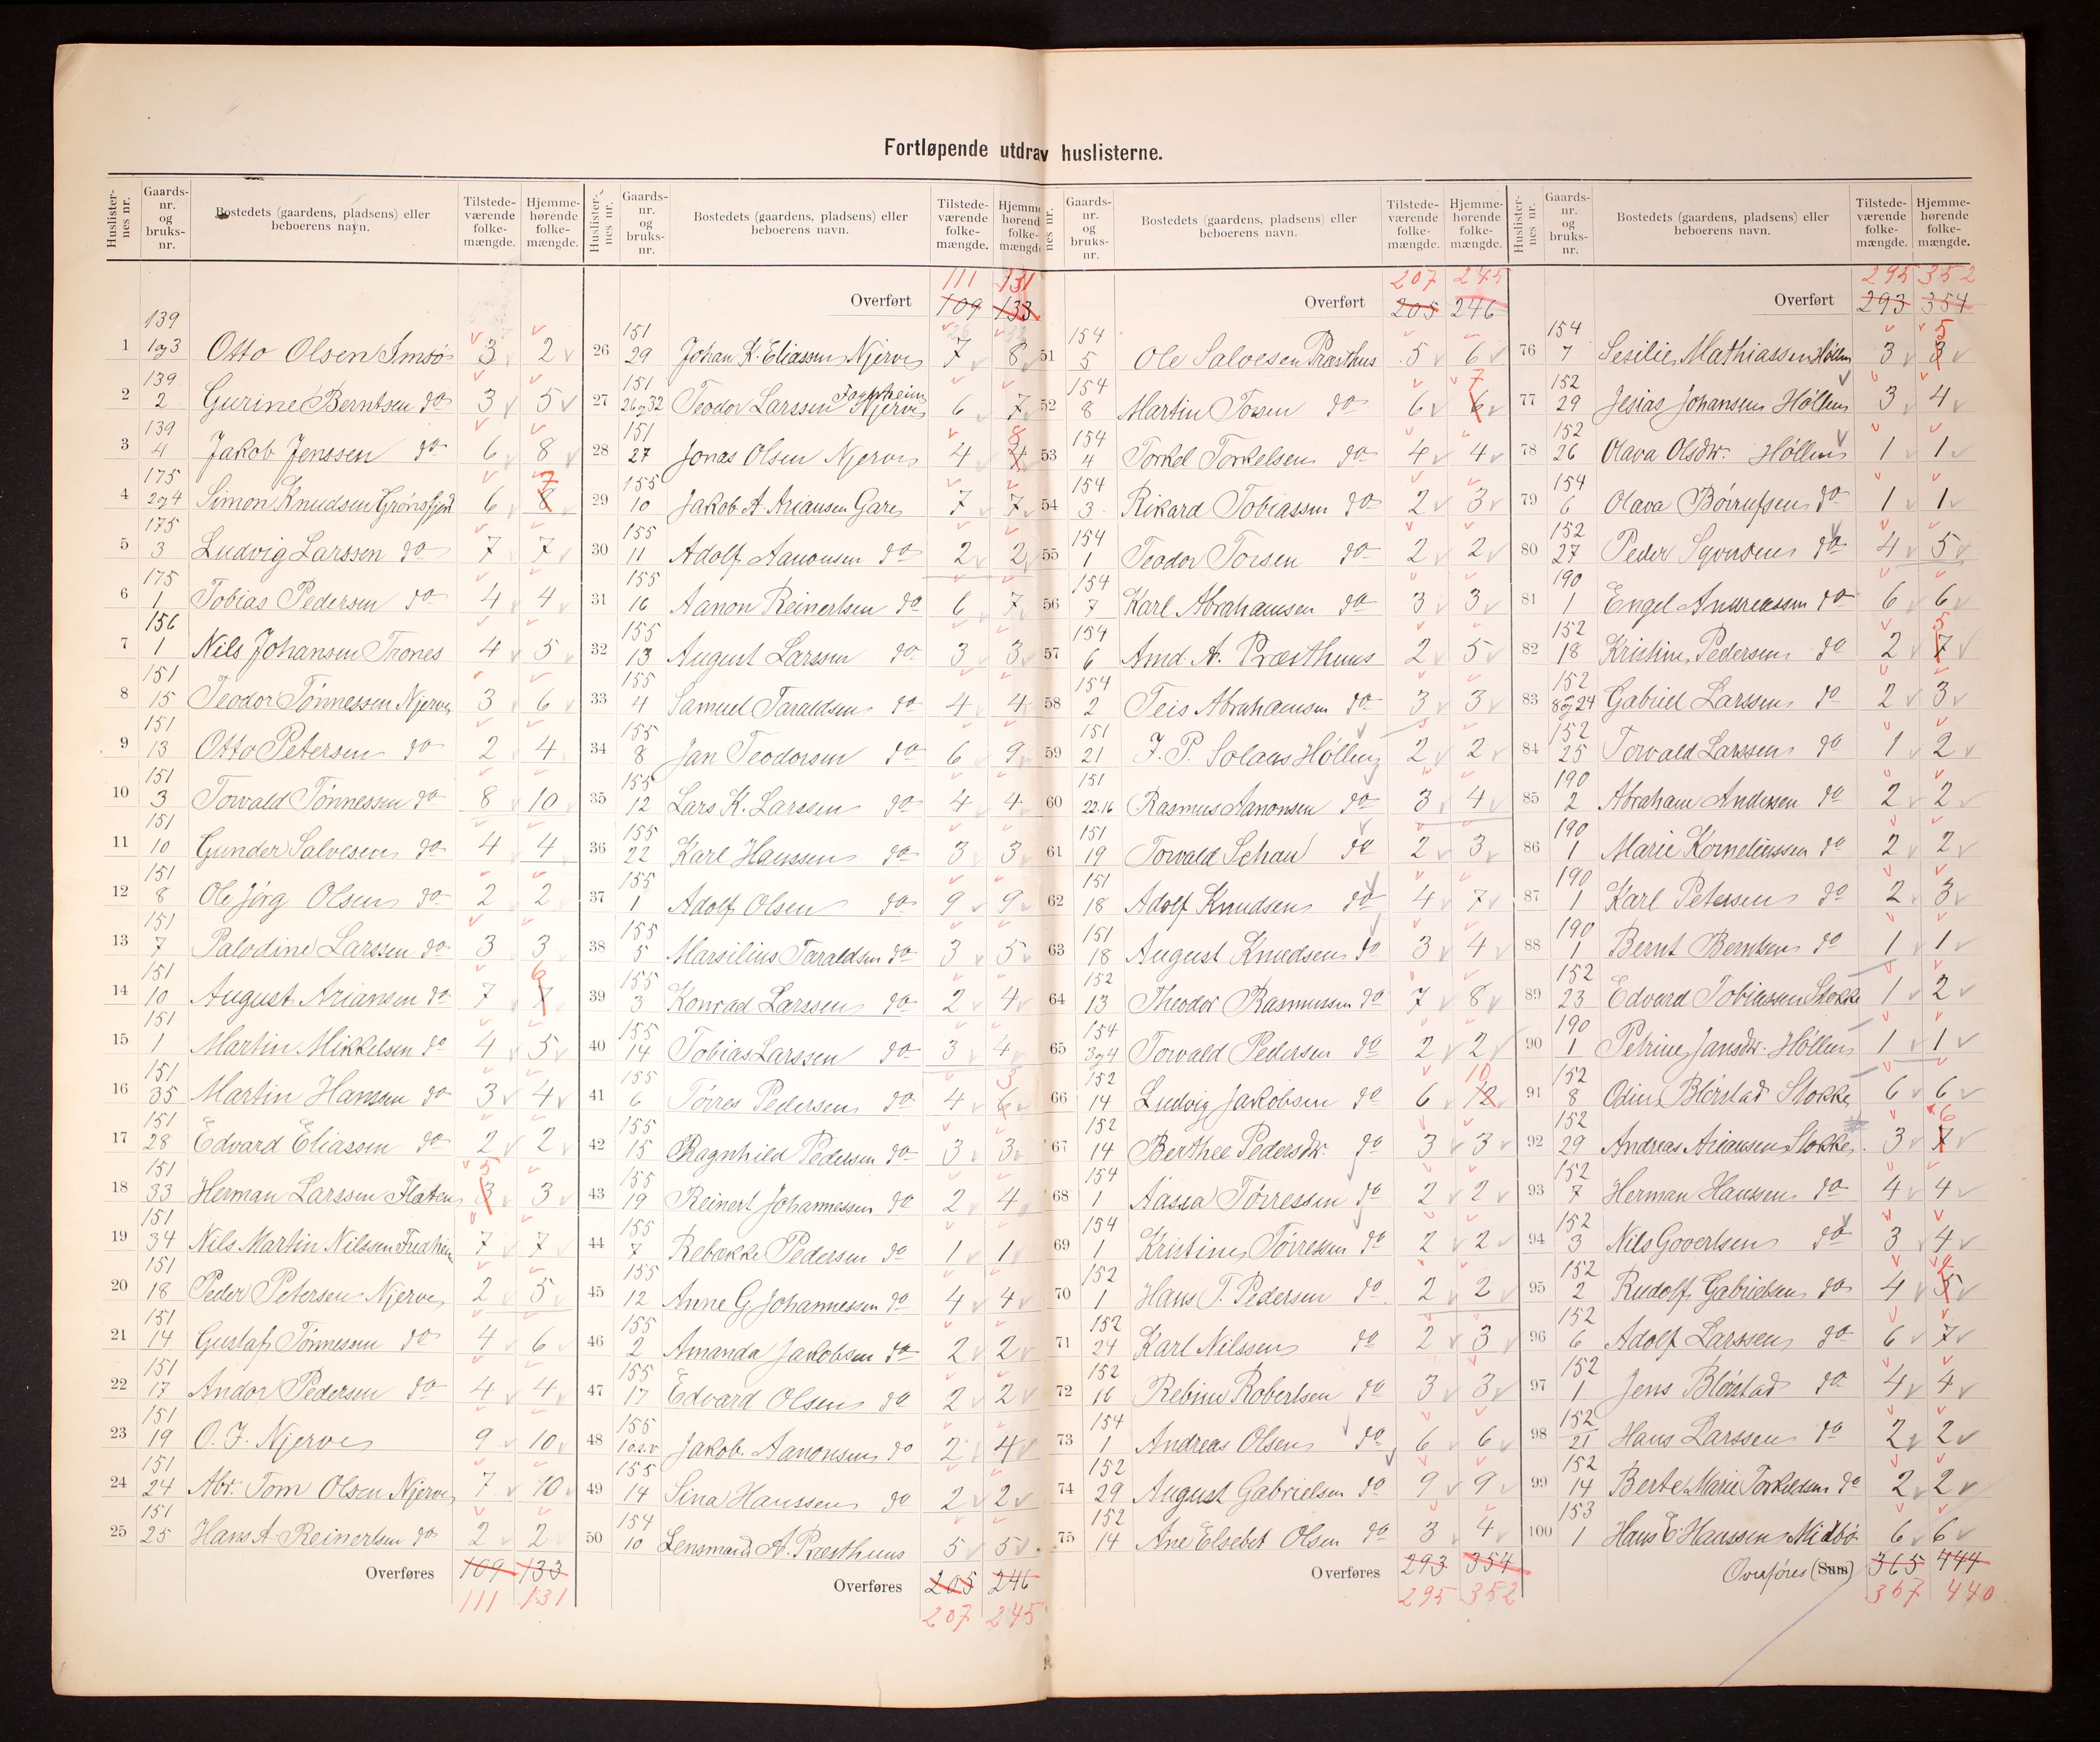 Fortløpende utdrav huslisterne.
Huslister-nes nr. Gaards-nr. og bruks-nr. Bostedets (gaardens, pladsens) eller beboerens navn. Tilstede-værende folke-mængde. Hjemme-hørende folke-mængde.
139
1 1og3 Otto Olsen Imsø 3 2
139
2 2 Gurine Berntsen do 3 5
139
3 4 Jakob Jenssen do 6 8
175 7
4 2og4 Simon Knudsen Grønsfjord 6 8
175
5 3 Ludvig Larssen do 7 7
175
6 1 Tobias Pedersen do 4 4
156
7 1 Nils Johansen Trones 4 5
151
8 15 Teodor Tønnessen Njerve 3 6
151
9 13 Otto Petersen do 2 4
151
10 3 Torvald Tønnessen do 8 10
151
11 10 Gunder Salvesen do 4 4
151
12 8 Ole Jørg Olsen do 2 2
151
13 7 Palodine Larssen do 3 3
151 6
14 10 August Ariansen do 7 7
151
15 1 Martin Mikkelsen do 4 5
151
16 35 Martin Hanssen do 3 4
151
17 28 Edvard Eliassen do 2 2
151 5
18 33 Herman Larssen Flaten 3 3
151
19 34 Nils Martin Nilssen 7 7
151
20 18 Peder Petersen Njerve 2 5
151
21 14 Gustaf Tønnessen do 4 6
151
22 17 Andor Pedersen do 4 4
151
23 19 O. J. Njerve 9 10
151
24 24 Abr. Tom Olsen Njerve 7 10
151
25 25 Hans A. Reinertsen do 2 2
Overføres 109 133
111 131
Huslister-nes nr. Gaards-nr. og bruks-nr. Bostedets (gaardens, pladsens) eller beboerens navn. Tilstede-værende folke-mængde. Hjemme hørend folke-mængde
111 131
Overført 109 133
151
26 29 Johan K. Eliassen Njerve 7 8
151
27 26og32 Teodor Larssen Njerve 6 7
151 8
28 27 Jonas Olsen Njerve 4
155
29 10 Jakob A. Ariansen Gare 7 7
155
30 11 Adolf Aanonsen do 2 2
155
31 16 Aanon Reinertsen do 6 7
155
32 13 August Larssen do 3 3
155
33 4 Samuel Taraldsen do 4 4
155
34 8 Jan Teodorsen do 6 9
155
35 12 Lars K. Larssen do 4 4
155
36 22 Karl Hanssen do 3 3
155
37 1 Adolf Olsen do 9 9
155
38 5 Marsilius Taraldsen do 3 5
155
39 3 Konrad Larssen do 2 4
155
40 14 Tobias Larssen do 3 4
155 5
41 6 Tørres Pedersen do 4 6
155
42 15 Ragnhild Pedersen do 3 3
155
43 19 Reinert Johannessen do 2 4
155
44 7 Rebekke Pedersen do 1 1
155
45 12 Anne G. Johannessen do 4 4
155
46 2 Amanda Jakobsen do 2 2
155
47 17 Edvard Olsen do 2 2
155
48 Jakob Aanonsen do 2 4
155
49 14 Sina Hanssen do 2 2
154
50 10 Lensmand A. Præsthuus 5 5
Overføres 205 246
207 245
nes nr. Gaards-nr. og bruks-nr. Bostedets (gaardens, pladsens) eller beboerens navn. Tilstede-værende folke-mængde. Hjemme-hørende folke-mængde.
207 245
Overført 205 246
154
51 5 Ole Salvesen Præsthus 5 6
154 7
52 8 Martin Torsen do 6 6
154
53 4 Torkel Torkelsen do 4 4
154
54 3 Rikard Tobiassen do 2 3
154
55 1 Teodor Torsen do 2 2
154
56 7 Karl Abrahamsen do 3 3
154
57 6 Arnd A. Præsthuus 2 5
154
58 2 Teis Abrahamsen do 3 3
151
59 21 J. P. Solaas Høllen 2 2
151
60 22.16 Rasmus Aanonsen do 3 4
151
61 19 Torvald Schau do 2 3
151
62 18 Adolf Knudsen do 4 7
151
63 18 August Knudsen do 3 4
152
64 13 Theodor Rasmussen do 7 8
154
65 3og4 Torvald Pedersen do 2 2
152 10
66 14 Ludvig Jakobsen do 6 12
152
67 14 Berthee Pedersdtr. do 3 3
154
68 1 Aasea Tørressen do 2 2
154
69 1 Kristine Tørressen do 2 2
152
70 1 Hans T. Pedersen do 2 2
152
71 24 Karl Nilssen do 2 3
152
72 16 Rebine Robertsen do 3 3
154
73 1 Andreas Olsen do 6 6
152
74 29 August Gabrielsen do 9 9
152
75 14 Ane Elsebet Olsen do 3 4
Overføres 293 354
295 352
Huslister-nes nr. Gaards-nr. og bruks-nr. Bostedets (gaardens, pladsens) eller beboerens navn. Tilstede-værende folke-mængde. Hjemme-hørende folke-mængde.
295 352
Overført 293 354
154 5
76 7 Sesilie Mathiassen Høllen 3 3
152
77 29 Jesias Johansen Høllen 3 4
152
78 26 Olava Olsdtr. Høllen 1 1
154
79 6 Olava Børrufsen do 1 1
152
80 27 Peder Syvertsen do 4 5
190
81 1 Engel Andreassen do 6 6
152 5
82 18 Kristine Pedersen do 2 7
152
83 8og24 Gabriel Larssen do 2 3
152
84 25 Torvald Larssen do 1 2
190
85 2 Abraham Andersen do 2 2
190
86 1 Marie Korneliussen do 2 2
190
87 1 Karl Petersen do 2 3
190
88 1 Bernt Berntsen do 1 1
152
89 23 Edvard Tobiassen Stokke 1 2
190
90 1 Petrine Jansdtr. Høllen 1 1
152
91 8 Odin Blørstad Stokke 6 6
152 6
92 29 Andreas Ariansen Stokke 3 7
152
93 7 Herman Hanssen do 4 4
152
94 3 Nils Govertsen do 3 4
152
95 2 Rudolf Gabrielsen do 4 5
152
96 6 Adolf Larssen do 6 7
152
97 1 Jens Blørstad do 4 4
152
98 21 Hans Larssen do 2 2
152
99 14 Berte Marie Torkeldsen do 2 2
153
100 1 Hans E. Hanssen Midbø 6 6
Overføres (Sum) 365 444
367 440